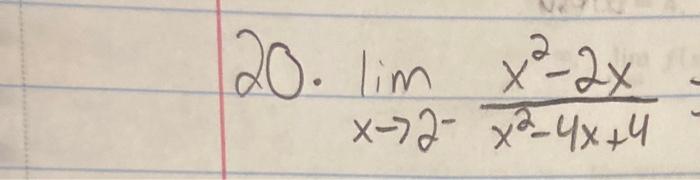 20. lim x²-2x =
x→2⁻ x²-4x+4